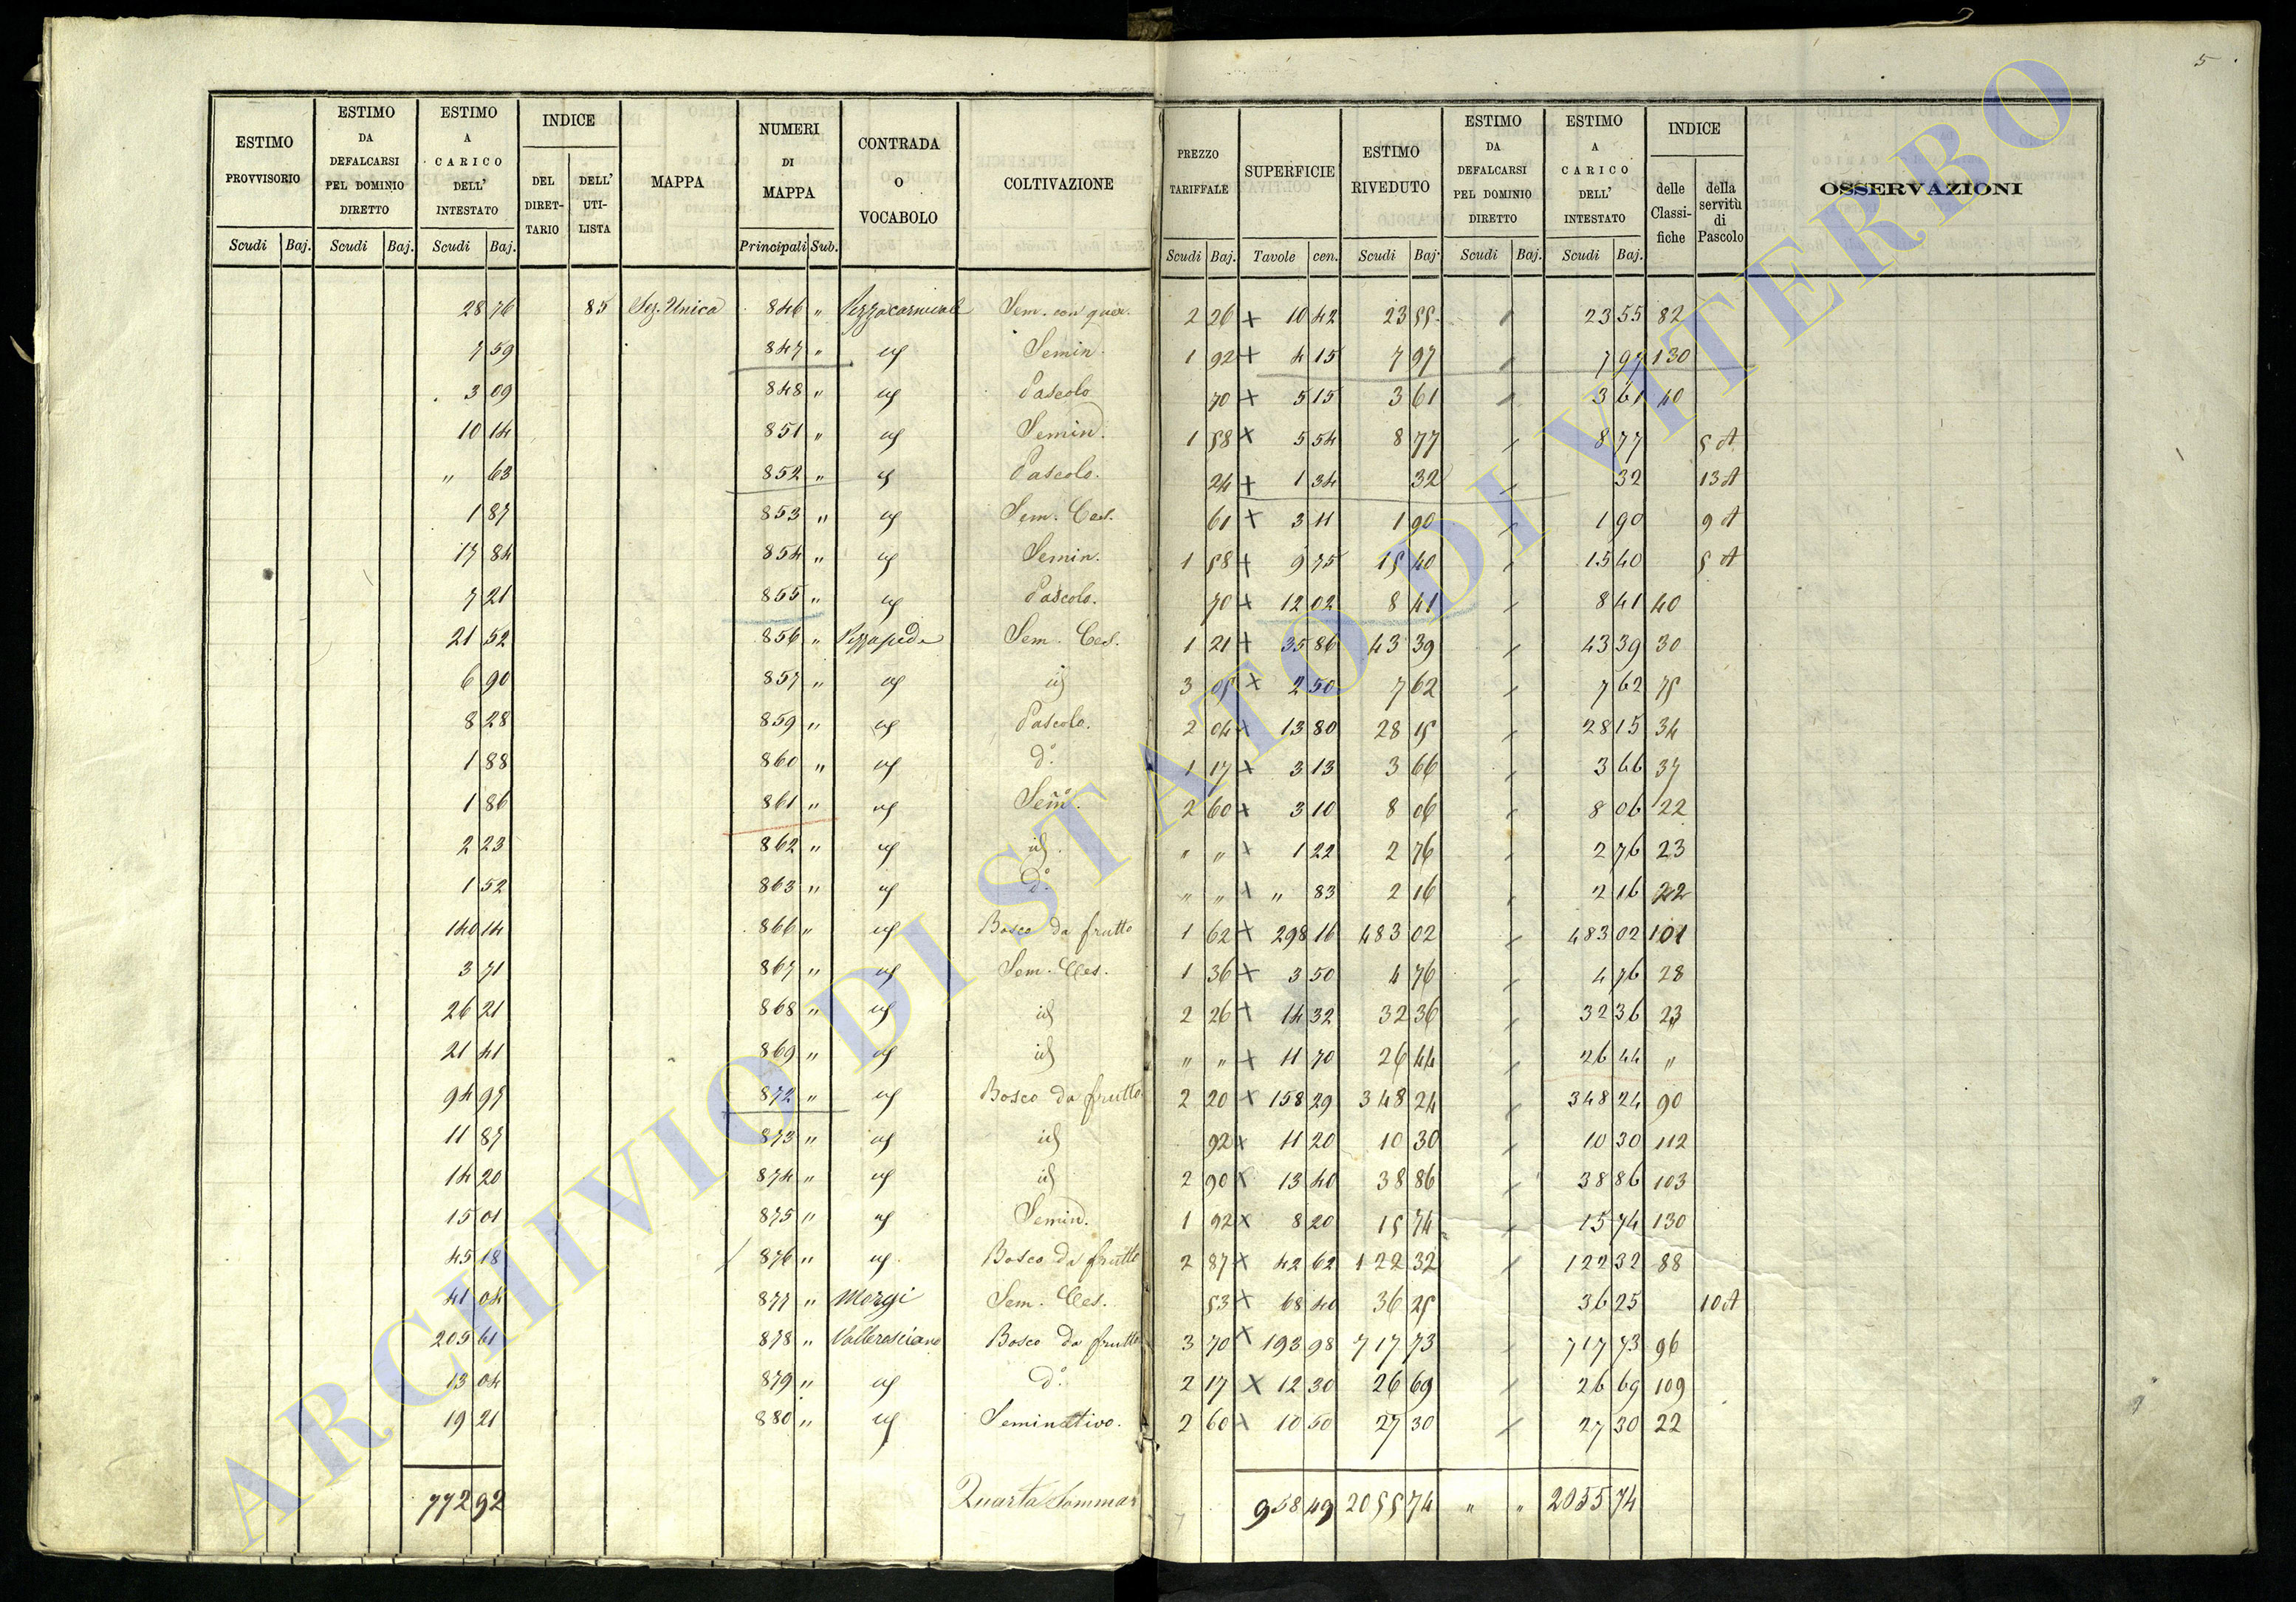 5
ESTIMO PROVVISORIO | ESTIMO DA DEFALCARSI PEL DOMINIO DIRETTO | ESTIMO A CARICO DELL' INTESTATO | INDICE | MAPPA | NUMERI DI MAPPA | CONTRADA O VOCABOLO | COLTIVAZIONE | PREZZO TARIFFALE | SUPERFICIE | ESTIMO RIVEDUTO | ESTIMO DA DEFALCARSI PEL DOMINIO DIRETTO | ESTIMO A CARICO DELL' INTESTATO | INDICE | OSSERVAZIONI
DEL DIRETTARIO | DELL' UTILISTA | delle Classifiche | della servitù di Pascolo
Scudi Baj. | Scudi Baj. | Scudi Baj. | Principali Sub. | Scudi Baj. | Tavole cen. | Scudi Baj. | Scudi Baj. | Scudi Baj.
28 76 | 85 | Sez. Unica | 846 " | Pezzacarnevale | Sem. con quer. | 2 26 x | 10 42 | 23 55 | / | 23 55 | 82
7 59 | 847 " | id | Semin. | 1 92 + | 4 15 | 7 97 | / | 7 97 | 130
3 09 | 848 " | id | Pascolo | 70 + | 5 15 | 3 61 | / | 3 61 | 40
10 14 | 851 " | id | Semin. | 1 58 x | 5 54 | 8 77 | / | 8 77 | 5 A
" 63 | 852 " | id | Pascolo. | 24 + | 1 34 | 32 | / | 32 | 13 A
1 87 | 853 " | id | Sem. Ces. | 61 + | 3 11 | 1 90 | / | 1 90 | 9 A
17 84 | 854 " | id | Semin. | 1 58 + | 9 75 | 15 40 | / | 15 40 | 5 A
7 21 | 855 " | id | Pascolo. | 70 + | 12 02 | 8 41 | / | 8 41 | 40
21 52 | 856 " | Pezzapeda | Sem. Ces. | 1 21 + | 35 86 | 43 39 | / | 43 39 | 30
6 90 | 857 " | id | id | 3 05 x | 2 50 | 7 62 | / | 7 62 | 75
8 28 | 859 " | id | Pascolo. | 2 04 x | 13 80 | 28 15 | / | 28 15 | 34
1 88 | 860 " | id | d.° | 1 17 x | 3 13 | 3 66 | / | 3 66 | 37
1 86 | 861 " | id | Sem°. | 2 60 + | 3 10 | 8 06 | / | 8 06 | 22
2 23 | 862 " | id | id. | " " x | 1 22 | 2 76 | / | 2 76 | 23
1 52 | 863 " | id | d.° | " " + | " 83 | 2 16 | / | 2 16 | 22
140 14 | 866 " | id | Bosco da frutto | 1 62 x | 298 16 | 483 02 | / | 483 02 | 101
3 71 | 867 " | id | Sem. Ces. | 1 36 x | 3 50 | 4 76 | / | 4 76 | 28
26 21 | 868 " | id | id | 2 26 + | 14 32 | 32 36 | / | 32 36 | 23
21 41 | 869 " | id | id | " " x | 11 70 | 26 44 | / | 26 44 | "
94 97 | 872 " | id | Bosco da frutto | 2 20 x | 158 29 | 348 24 | / | 348 24 | 90
11 87 | 873 " | id | id | 92 x | 11 20 | 10 30 | / | 10 30 | 112
14 20 | 874 " | id | id | 2 90 x | 13 40 | 38 86 | / | 38 86 | 103
15 01 | 875 " | id | Semin. | 1 92 x | 8 20 | 15 74 | / | 15 74 | 130
45 18 | / 876 " | id. | Bosco da frutto | 2 87 x | 42 62 | 122 32 | / | 122 32 | 88
41 04 | 877 " | Morgi | Sem. Ces. | 53 x | 68 40 | 36 25 | 36 25 | 10 A
205 61 | 878 " | Vallerosciano | Bosco da frutto | 3 70 x | 193 98 | 717 73 | / | 717 73 | 96
13 04 | 879 " | id | d.° | 2 17 x | 12 30 | 26 69 | / | 26 69 | 109
19 21 | 880 " | id | Seminativo. | 2 60 x | 10 50 | 27 30 | / | 27 30 | 22
772 92 | Quarta Sommar | 958 49 | 2055 74 | " " | 2055 74
ARCHIVIO DI STATO DI VITERBO